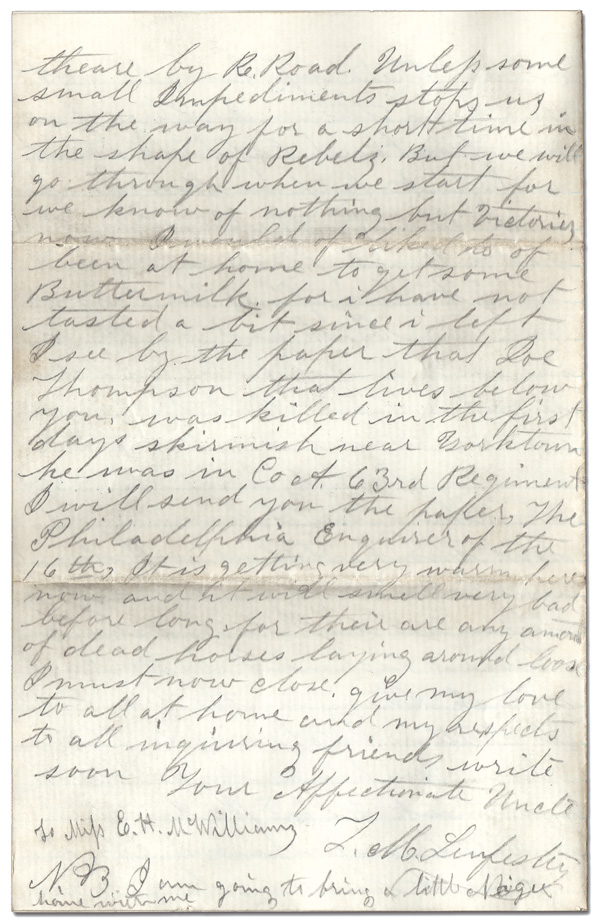 theare by R. Road. Unless some
small Impediments stops us
on the way for a short time in
the shape of Rebels. But we will
go through when we start for
we know of nothing but Victories
now I would of liked to of
been at home to get some
Buttermilk. for i have not
tasted a bit since i left
I see by the paper that Joe
Thompson that lives below
you, was killed in the first
days skirmish near Yorktown
he was in Co A 63rd Regiment
I will send you the paper, The
Philadelphia Enquirer of the
16th, It is getting very warm here
now and it will smell very bad
before long, for their are any amount
of dead horses laying around loose
I must now close. give my love
to all at home and my respects
to all inquiring friends write
soon Your Affectionate Uncle
To Miss E. H. McWilliams
M. Lenfestey
N B I am going to bring a little Niger
home with me